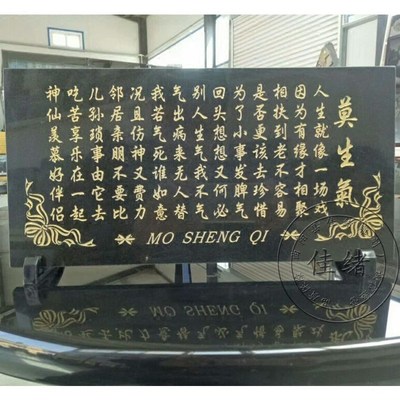 莫生氣
人生就像一场戏
因为有缘才相聚
相扶到老不容易
是否更该去珍惜
为了小事发脾气
回头想想又何必
别人生气我不气
气出病来无人替
我若气死谁如意
况且伤神又费力
邻居亲朋不要比
儿孙琐事由它去
吃苦享乐在一起
神仙羡慕好伴侣
MO SHENG QI
佳緒